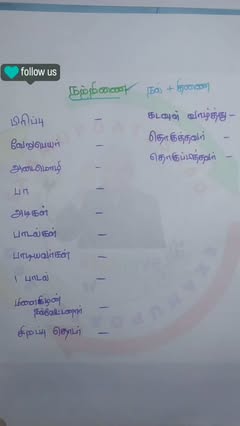 follow us
நற்றிணை நல + திணை
பிரிப்பு –
வேறுபெயர் –
அடைமொழி –
பா –
அடிகள் –
பாடல்கள் –
பாடியவர்கள் –
1 பாடல் –
–
சிறப்பு தொடர் –
கடவுள் வாழ்த்து –
தொகுத்தவர் –
தொகுப்பித்தவர் –